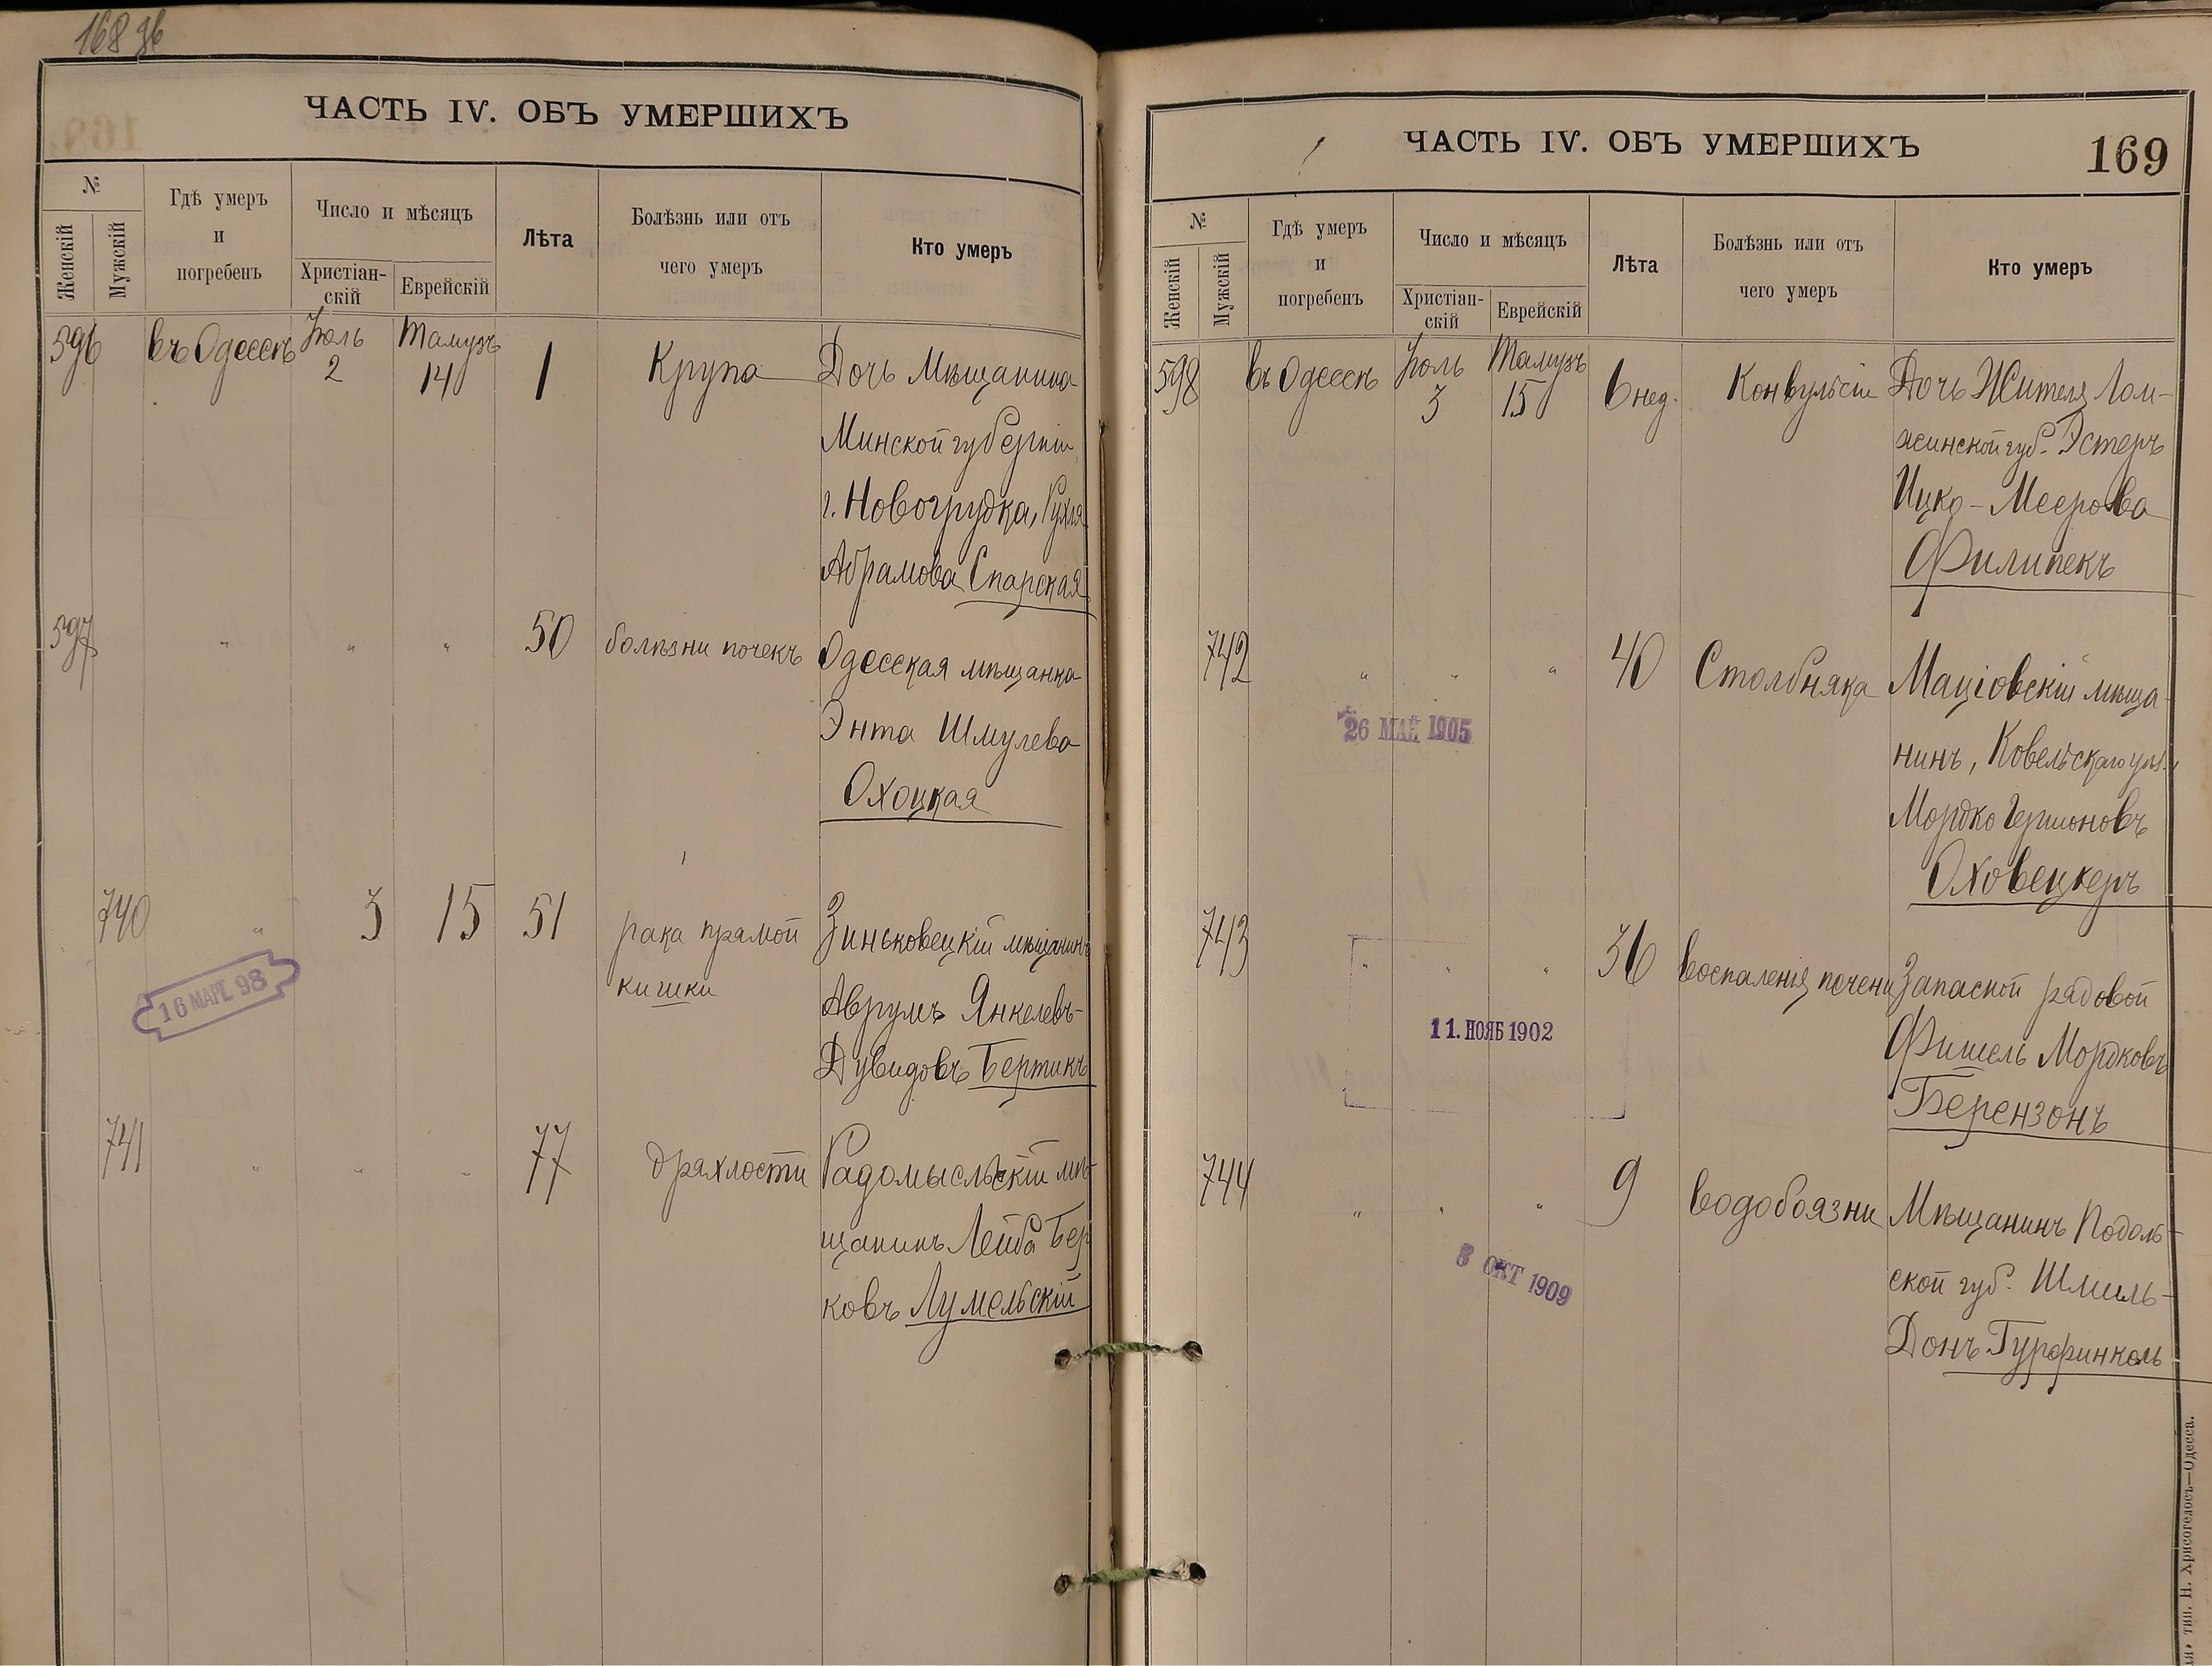 168 об
ЧАСТЬ IV. ОБЪ УМЕРШИХЪ
№
Женскій
Мужскій
Гдѣ умеръ
и
погребенъ
Число и мѣсяцъ
Христіан-
скій
Еврейскій
Лѣта
Болѣзнь или отъ
чего умеръ
Кто умеръ
596 въ Одессѣ Іюль 2 Тамузъ 14 1 Крупа Дочь Мѣщанина
Минской губерніи
г. Новогрудка, Рухля
Абрамова Спарская
597 " " " 50 болѣзни почекъ Одесская мѣщанка
Энта Шмулева
Охоцкая
740 " 3 15 51 рака прямой Зиньковецкій мѣщанинъ
кишки Аврумъ Янкелевъ-
16 МАРТ. 98
Дувидовъ Бертикъ
741 " " " 77 дряхлости Радомысльскій мѣ-
щанинъ Лейба Бер
ковъ Лумельскій
ЧАСТЬ IV. ОБЪ УМЕРШИХЪ
169
№
Женскій
Мужскій
Гдѣ умеръ
и
погребенъ
Число и мѣсяцъ
Христіан-
скій
Еврейскій
Лѣта
Болѣзнь или отъ
чего умеръ
Кто умеръ
598 въ Одессѣ Іюль 3 Тамузъ 15 6 нед. Конвульсіи Дочь Жителя Лом-
жинской губ. Эстеръ
Ицко-Меерова
Филипекъ
742 " " " 40 Столбняка Маціовскій мѣща-
26 МАЙ 1905
нинъ, Ковельскаго уѣз.
Мордко Гершоновъ
Оховецкеръ
743 " " " 36 воспаленія печени Запасной рядовой
11. НОЯБ 1902
Фишель Мордковъ
Берензонъ
744 " " " 9 водобоязни Мѣщанинъ Подоль-
8 ОКТ 1909
ской губ. Шмиль-
Донъ Гурфинкель
тип. Н. Хрисогелосъ—Одесса.